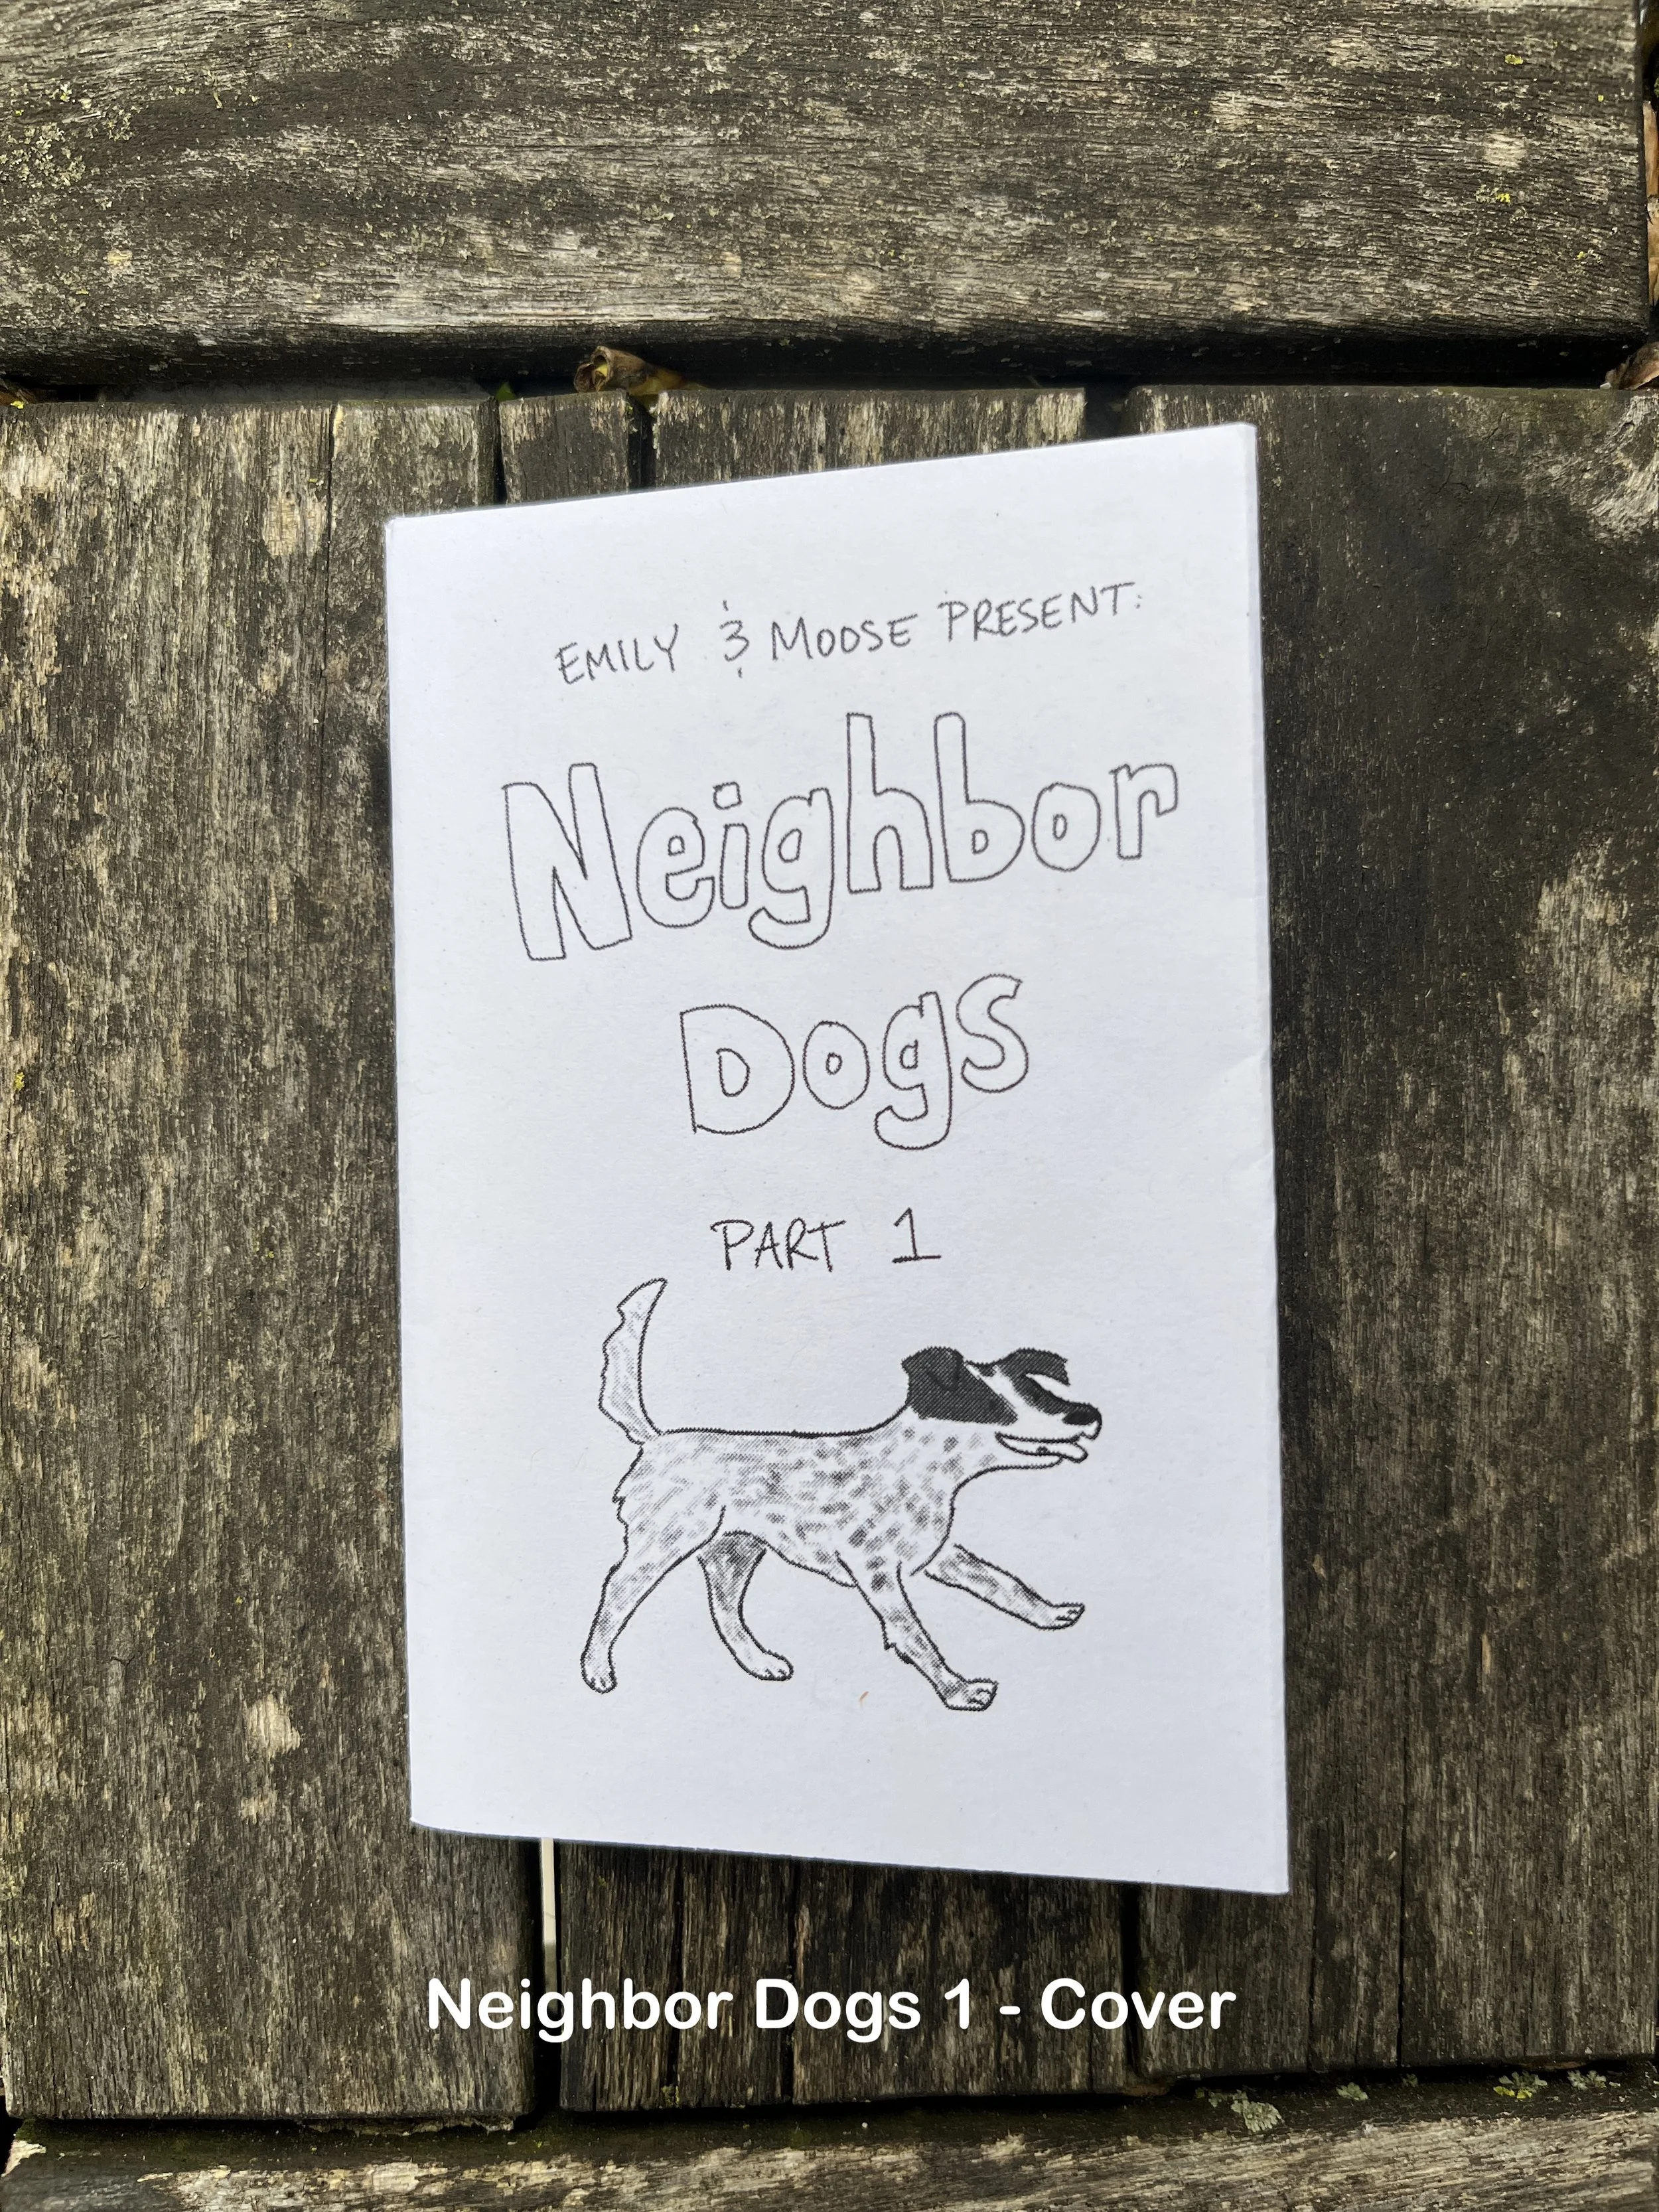 EMILY & MOOSE PRESENT:
Neighbor
Dogs
PART 1
Neighbor Dogs 1 - Cover